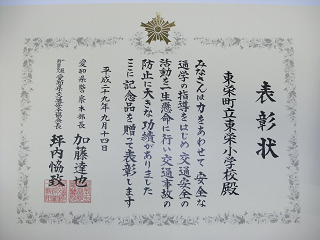 表彰状
東栄町立東栄小学校殿
みなさんは力をあわせて安全な
通学の指導をはじめ交通安全の
活動を一生懸命に行い交通事故の
防止に大きな功績がありました
ここに記念品を贈って表彰します
平成二十九年九月十四日
愛知県警察本部長 加藤達也
愛知県交通安全協会長 坪内恊致